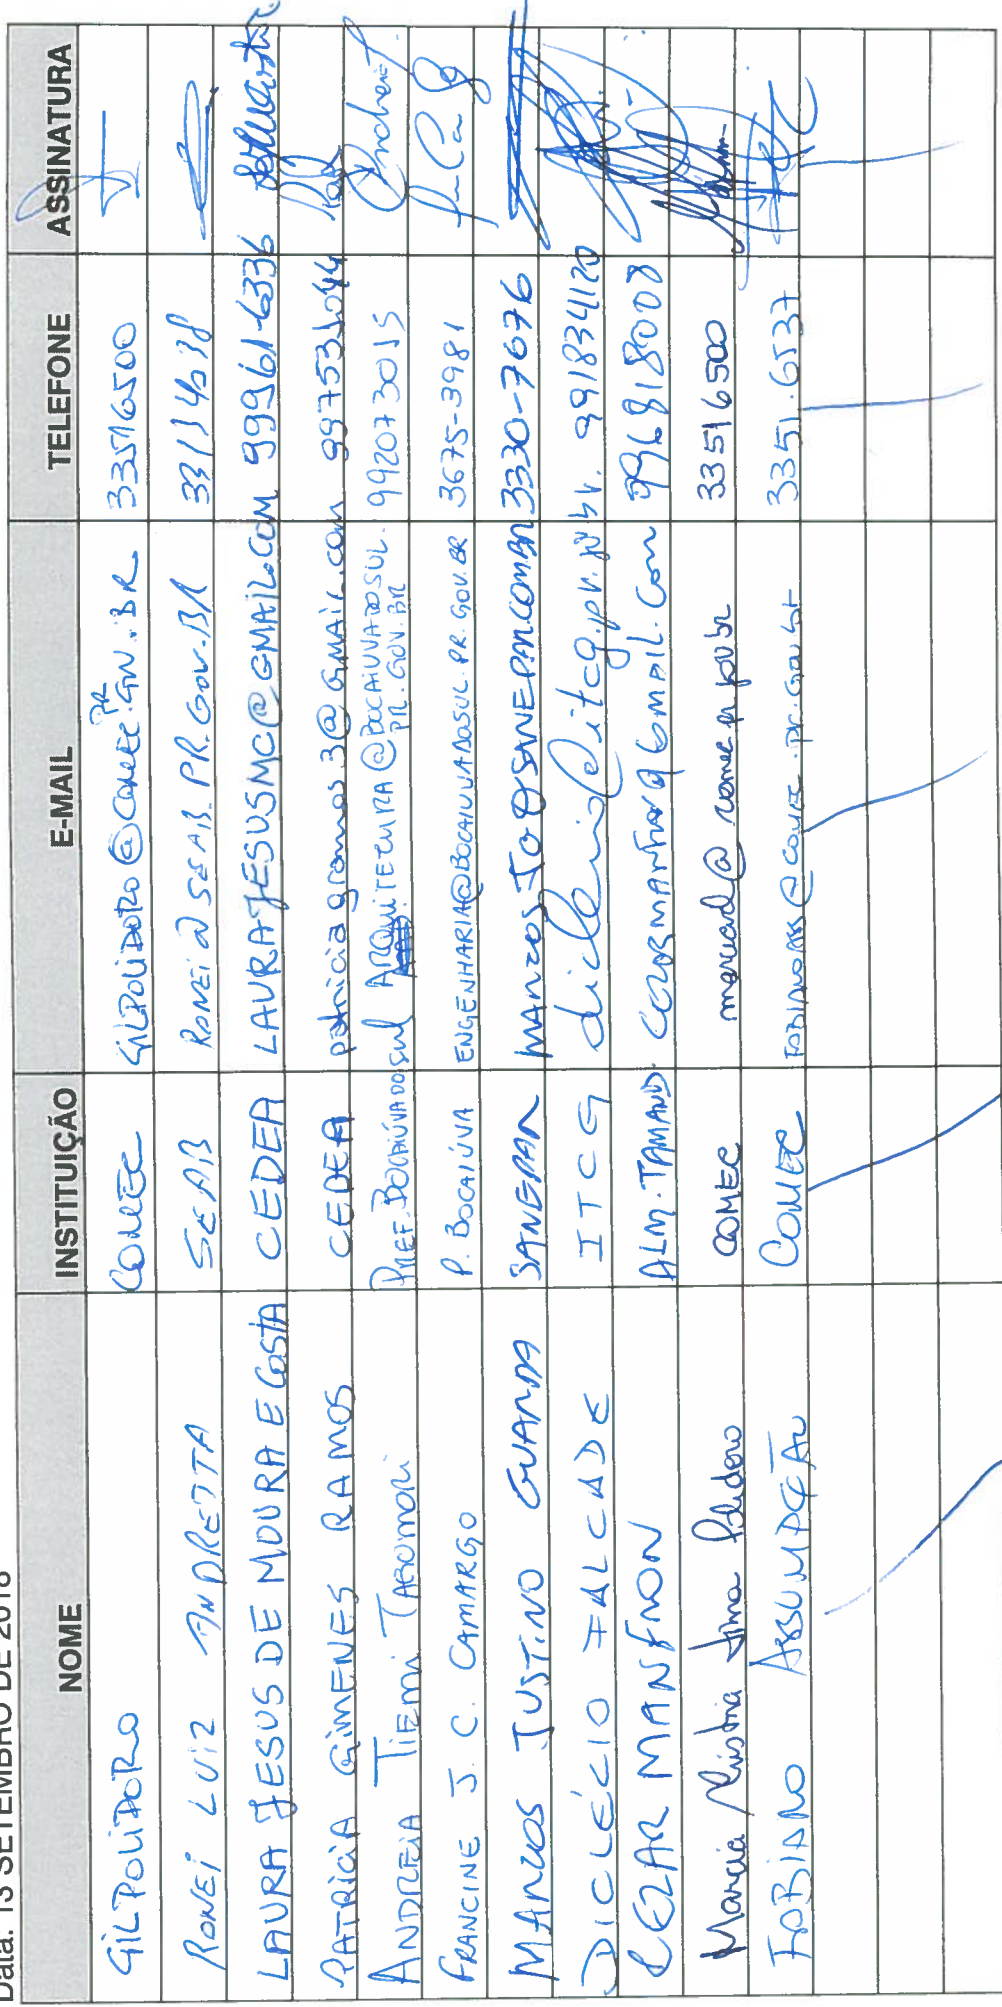 Data: 13 SETEMBRO DE 2018
NOME INSTITUIÇÃO E-MAIL TELEFONE ASSINATURA
GIL POLIDORO COMEC GILPOLIDORO@COMEC.PR.GOV.BR 33516500
RONEI LUIZ ANDRETTA SEAB RONEI@SEAB.PR.GOV.BR
LAURA JESUS DE MOURA E COSTA CEDEA LAURAJESUSMC@GMAIL.COM 99961-6336
PATRICIA GIMENES RAMOS CEDEA patriciagramos3@GMAIL.com
ANDREIA TIEMI TABOMORI PREF. BOCAIÚVA DO SUL ARQUITETURA@BOCAIUVADOSUL.PR.GOV.BR 992073015
FRANCINE J. C. CAMARGO P. BOCAIÚVA ENGENHARIA@BOCAIUVADOSUL.PR.GOV.BR 3675-3981
MARCOS JUSTINO GUARDA SANEPAR MARCOSJG@SANEPAR.COM.BR 3330-7676
DICLÉCIO FALCADE ITCG 991834120
CEZAR MANFRON ALM. TAMAND. 996918008
Marcia COMEC 33516500
FABIANO ASSUMPÇÃO COMEC 3351.6537